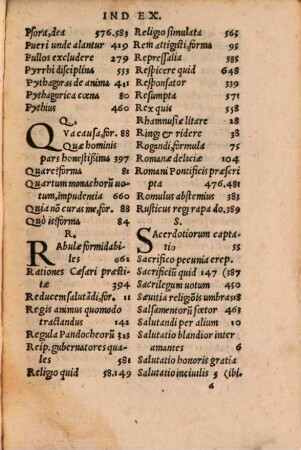 IND EX.
Psora, dea 576.583
Pueri unde alantur 419
Pullos excludere 279
Pyrrhi disciplina 553
Pythagoras de anima 411
Pythagorica cœna 80
Pythius 460
Q.
QVA causa, for. 88
Quæ hominis
pars honestißima 597
Quare? forma 81
Quartum monachorũ uo=
tum, impudenia 660
Quia nõ curas me, for. 88
Quò is? forma 84
R.
RAbulæ formidabi=
les 661
Rationes Cæsari præsti=
tæ 394
Reducem salutãdi, for. 11
Regis animus quomodo
tractandus 141
Regula Pandocheorũ 313
Reip. gubernatores qua=
les 581
Religio quid 58.149
Religio simulata 565
Rem attigisti, forma 95
Repressalia 585
Respicere quid 648
Responsator 339
Resumpta 571
Rex quis 558
Rhamnusiæ litare 28
Ringi et ridere 38
Rogandi, formula 75
Romanæ deliciæ 104
Romani Pontificis præscri
pta 476,481
Romulus abstemius 383
Rusticus regi rapa do. 389
S.
SAcerdotiorum capta=
tio 55
Sacrifico pecunia erep.
Sacrificiũ quid 147 (387
Sacrilegum uotum 450
Sæuitia religiõis umbra 518
Salsamentorũ fœtor 463
Salutandi per alium 10
Salutatio blandior inter
amantes 6
Salutatio honoris gratia
Salutatio inciuilis 5 (ibi.
6